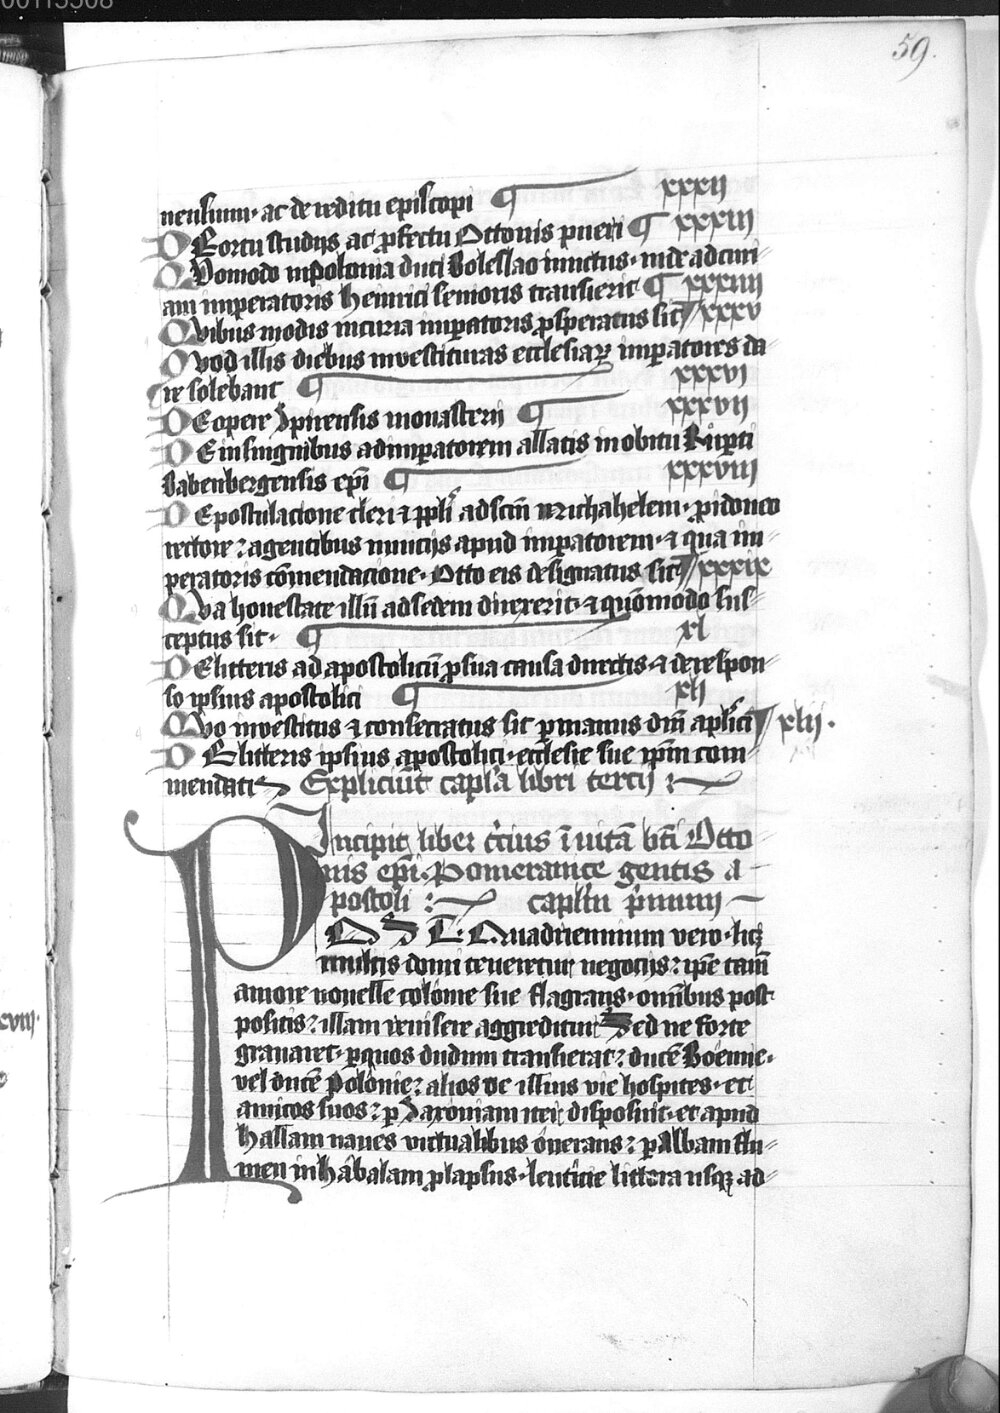 59.
nensium· ac de reditu episcopi ¶ xxxii
DE ortu studiis ac ꝓfectu Ottonis pueri ¶ xxxiii
Quomodo in polonia duci Boleslao iunctus· inde ad curi-
am imperatoris Heinrici senioris transierit ¶ xxxiiii
Quibus modis in curia impatoris ꝓsperatus sit xxxv
Quod illis diebus inuestituras ecclesiaꝝ impatores da-
re solebant ¶ xxxvi
DE opere spirensis monasterij ¶ xxxvii
DE insingnibus ad impatorem allatis in obitu Rupti
Babenbergensis epi ¶ xxxviii
DE postulacione cleri ⁊ ppli ad scm michahelem· ꝓ idoneo
rectore: agentibus nuncijs apud impatorem· ⁊ qua im-
peratoris comendacione· Otto eis designatus sit xxxix
Qua honestate illu ad sedem direxerit· ⁊ quomodo sus-
ceptus sit· ¶ xl
DE litteris ad apostolicu ꝓ sua causa directis ⁊ de respon-
so ipsius apostolici ¶ xli
Quo inuestitus ⁊ consecratus sit ꝑ manus dni aplici xlii·
DE litteris ipsius apostolici· ecclesie sue ipm com
mendatis Expliciut capla libri tercij :~
Incipit liber tcius i uita bti Otto
nis epi· Pomeranice gentis a-
postoli :~ caplm pmum
POST Quadriennium vero· licꝫ
multis domi teneretur negocijs: ipe tam
amore nouelle colonie sue flagrans· omnibus post-
positis: illam reuisere aggreditur Sed ne forte
grauaret· ꝑ quos dudum transierat: ducem Boemie·
vel duce Polonie: alios de istius vie hospites· et
amicos suos: ꝑ Saxoniam iter disposuit· et apud
hallam naues victualibus onerans: ꝑ Albam flu-
men in habalam ꝓlapsus· leuticie littora usqꝫ ad-